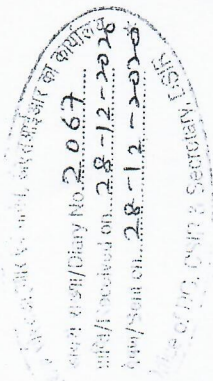 का कार्यालय
संख्या/Diary No. 2067
/Received on. 28-12-2020
/Sent on. 28-12-2020
Office of DG, CSIR & Secretary, DSIR